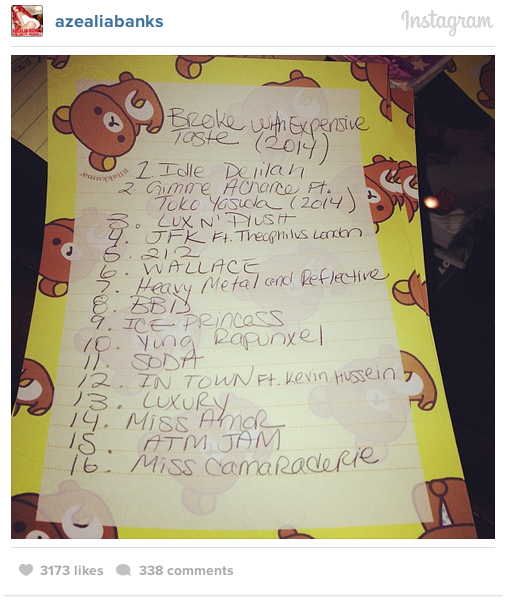 azealiabanks
Instagram
Broke with Expensive
Taste (2014)
1. Idle Delilah
2. Gimme A Chance Ft.
Toko Yasuda (2014)
3. LUX N' PlusH
4. JFK Ft. Theophilus London
5. 212
6. WALLACE
7. Heavy Metal and Reflective
8. BBD
9. ICE PRINCESS
10. Yung Rapunxel
11. SODA
12. IN TOWN Ft. Kevin Hussein
13. LUXURY
14. Miss Amor
15. ATM JAM
16. Miss Camaraderie
Rilakkuma
3173 likes 338 comments